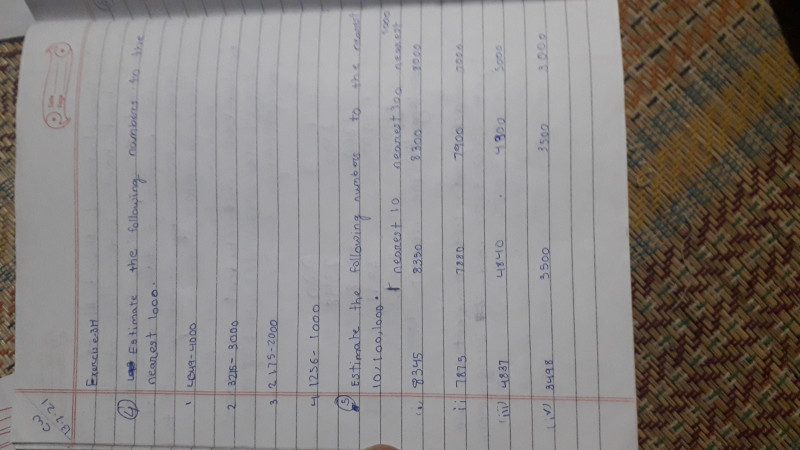 Exercise 3H
4 Estimate the following numbers to the
nearest 1000.
1 4049-4000
2 3215- 3000
3 2175-2000
4 1256- 1000
5 Estimate the following numbers to the nearest
10, 100, 1000.
nearest 10 nearest 100 nearest 1000
i) 8345 8350 8300 8000
ii) 7875 7880 7900
iii) 4837 4840 5000
iv) 3498 3500 3500 3000